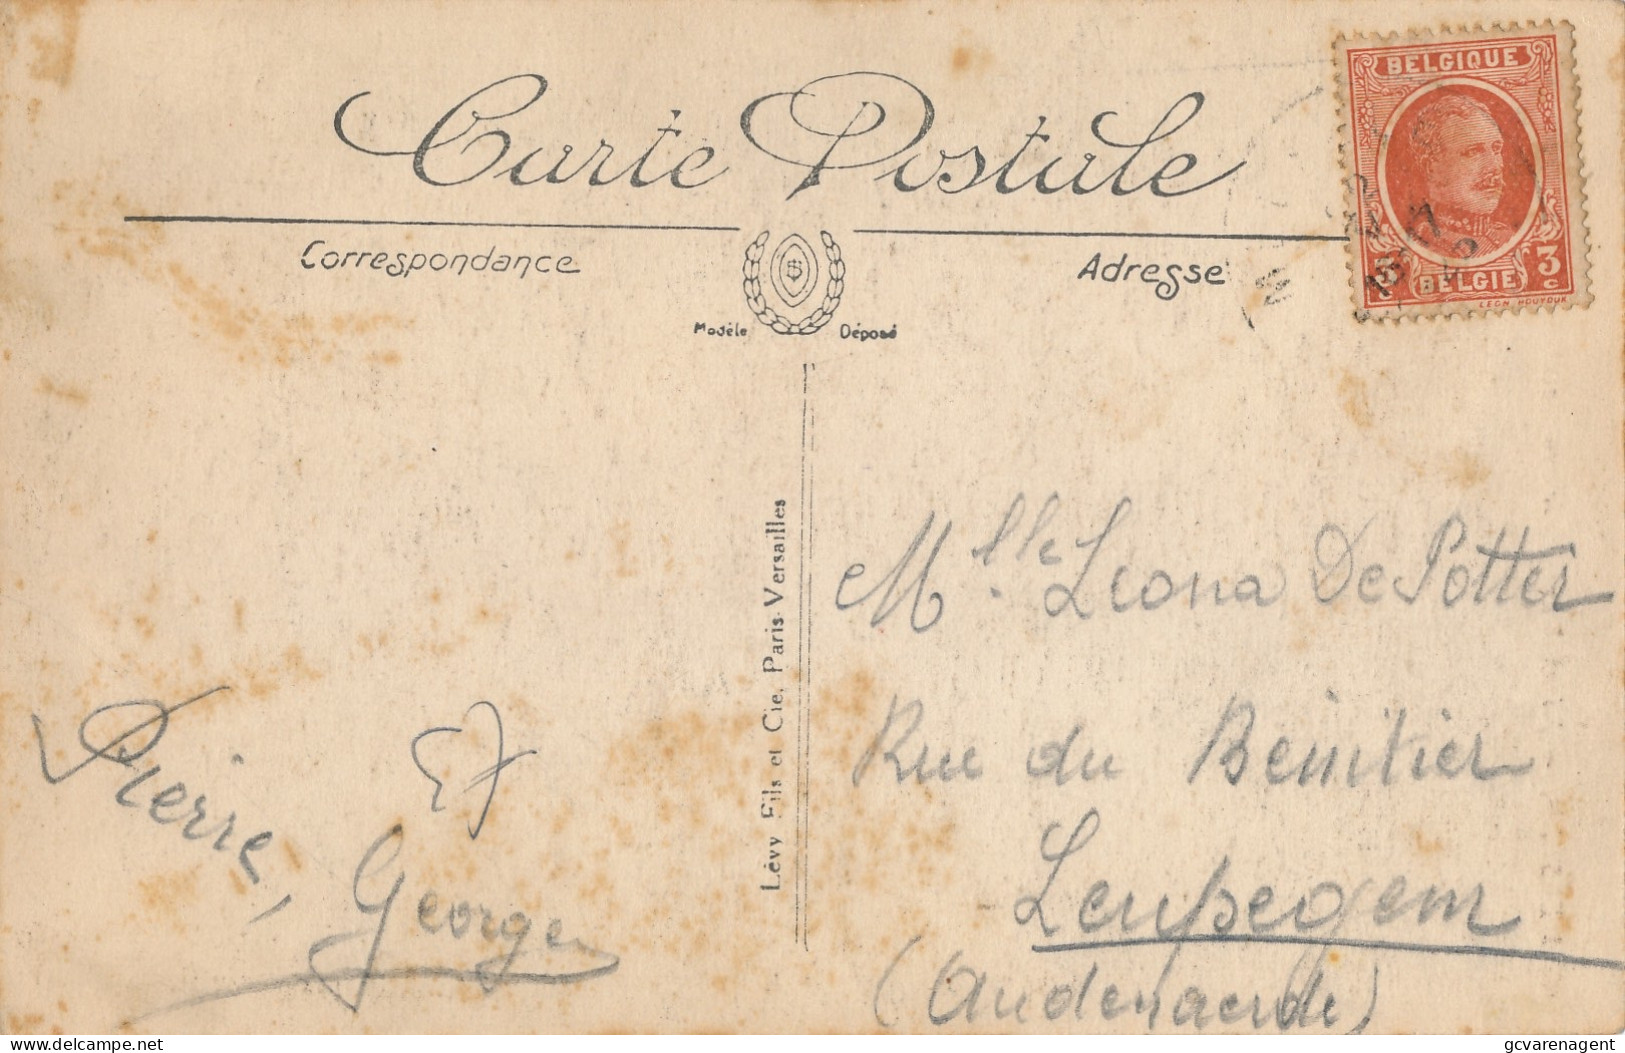 Carte Postale
Correspondance
Adresse
Modèle Déposé
BELGIQUE
3 BELGIE 3
C C
LEON HOUYOUX
Lévy Fils et Cie, Paris-Versailles
Mlle. Leona De Potter
Rue du Benitier
Leupegem
(Audenaerde)
Pierre,
Et
George
delcampe.net
gcvarenagent